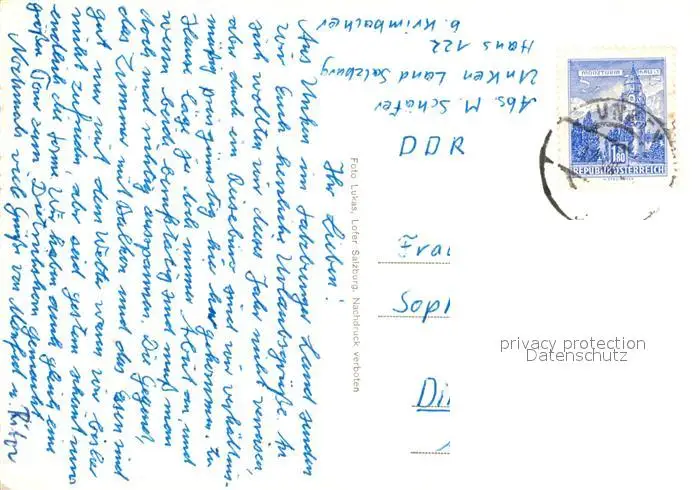 Abs. M. Schäfer
Unken Land Salzburg
Haus 122
b. Krimbacher
Ihr Lieben!
Aus Unken im Salzburger Land senden
wir Euch herzliche Urlaubsgrüße. An
sich wollten wir dieses Jahr nicht verreisen,
aber durch ein Reisebüro sind wir verhältnis-
mäßig preisgünstig hier her gekommen. Zu
Hause liegt ja doch immer Arbeit an, und
wenn beide berufstätig sind muß man
doch mal richtig ausspannen. Die Gegend,
das Zimmer mit Balkon und das Essen sind
gut nur mit dem Wetter waren wir bisher
nicht zufrieden, aber seit gestern scheint nun
endlich die Sonne. Wir haben auch gleich eine
großen Tour zum Dietrichshorn gemacht.
Nochmals viele Grüße von Manfred u.
Foto Lukas, Lofer Salzburg. Nachdruck verboten
DDR
Frau
Soph
Di
MÜNZTURM HALL i. T.
1.80
REPUBLIK ÖSTERREICH
UNKEN
privacy protection
Datenschutz